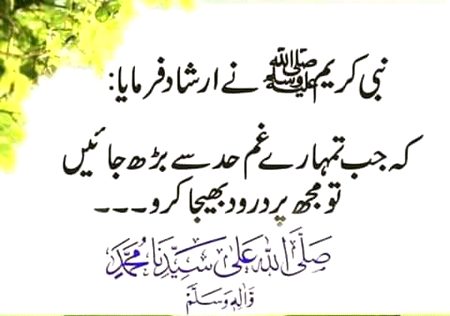 نبی کریم ﷺ نے ارشاد فرمایا:
کہ جب تمہارے غم حد سے بڑھ جائیں
تو مجھ پر درود بھیجا کرو۔۔۔
صَلَّی اللہُ عَلٰی سَیِّدِنَا مُحَمَّدٍ
وَّاٰلِہٖ وَسَلَّمَ